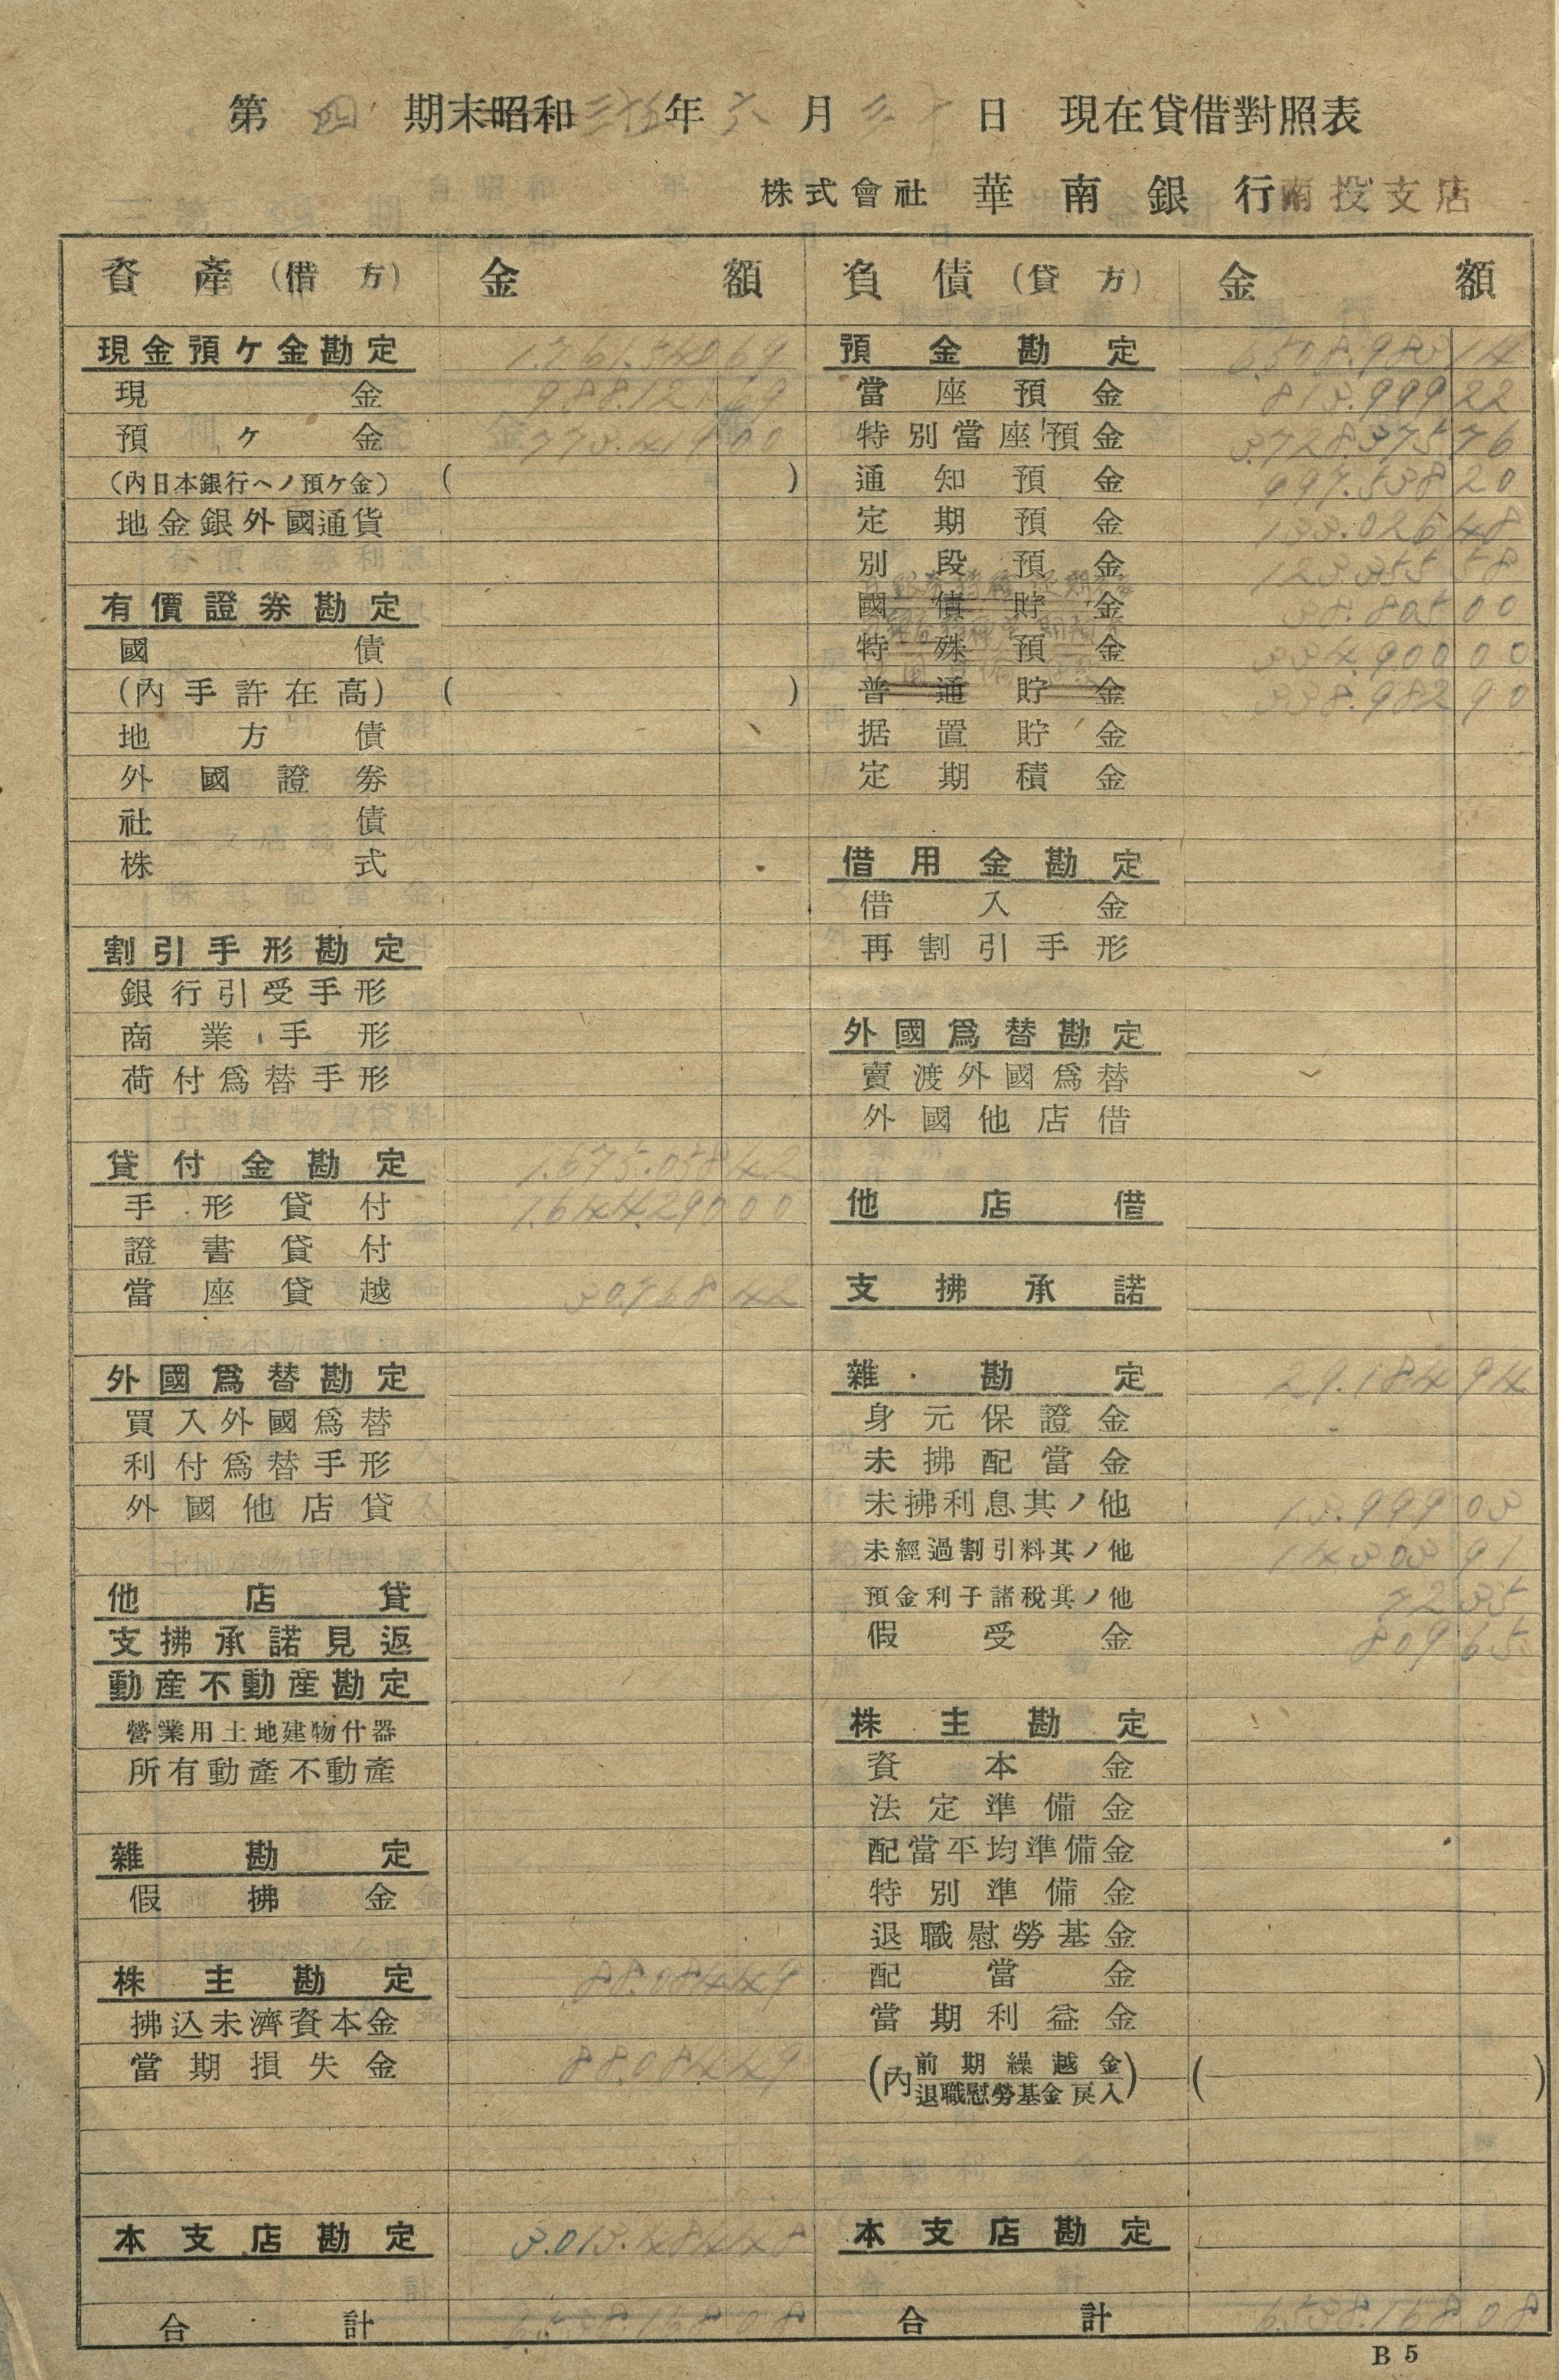 第 四 期末昭和三十五年六月三十日 現在貸借對照表
株式會社 華南銀行南投支店
資產(借方) 金額
現金預ケ金勘定 1.761.540 69
現金 988.121 69
預ケ金 773.419 00
(內日本銀行ヘノ預ケ金) ( )
地金銀外國通貨
有價證券勘定
國債
(內手許在高) ( )
地方債
外國證券
社債
株式
割引手形勘定
銀行引受手形
商業手形
荷付爲替手形
貸付金勘定 1.675.058 42
手形貸付 1.644.290 00
證書貸付
當座貸越 30.768 42
外國爲替勘定
買入外國爲替
利付爲替手形
外國他店貸
他店貸
支拂承諾見返
動產不動產勘定
營業用土地建物什器
所有動產不動產
雜勘定
假拂金
株主勘定 88.084 49
拂込未濟資本金
當期損失金 88.084 49
本支店勘定 3.013.484 48
合計 6.538.168 08
負債(貸方) 金額
預金勘定 6.508.983 14
當座預金 813.999 22
特別當座預金 3.728.375 76
通知預金 997.538 20
定期預金 133.026 48
別段預金 123.355 58
國債貯金 38.805 00
特殊預金 334.900 00
普通貯金 338.982 90
据置貯金
定期積金
借用金勘定
借入金
再割引手形
外國爲替勘定
賣渡外國爲替
外國他店借
他店借
支拂承諾
雜勘定 29.184 94
身元保證金
未拂配當金
未拂利息其ノ他 13.999 03
未經過割引料其ノ他 14.303 91
預金利子諸稅其ノ他 72 35
假受金 809 65
株主勘定
資本金
法定準備金
配當平均準備金
特別準備金
退職慰勞基金
配當金
當期利益金
(內前期繰越金
退職慰勞基金戾入) ( )
本支店勘定
合計 6.538.168 08
B 5